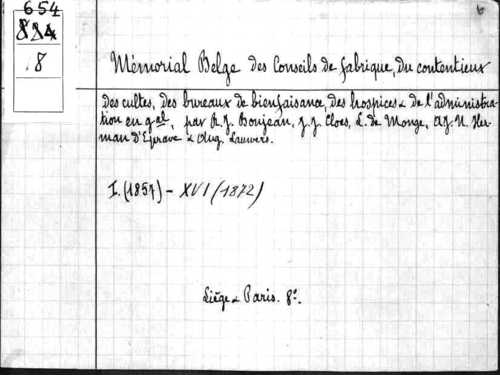 654
884
8
6
Mémorial Belge des Conseils de fabrique, du contentieux
des cultes, des bureaux de bienfaisance, des hospices & de l'administra-
tion en gal, par R. J. Bonjean, J. J. Cloes, L. de Monge, Aj. N. Her-
man d'Eprave & Aug. Lauwers.
I. (1857) - XVI (1872)
Liège & Paris. 8°.